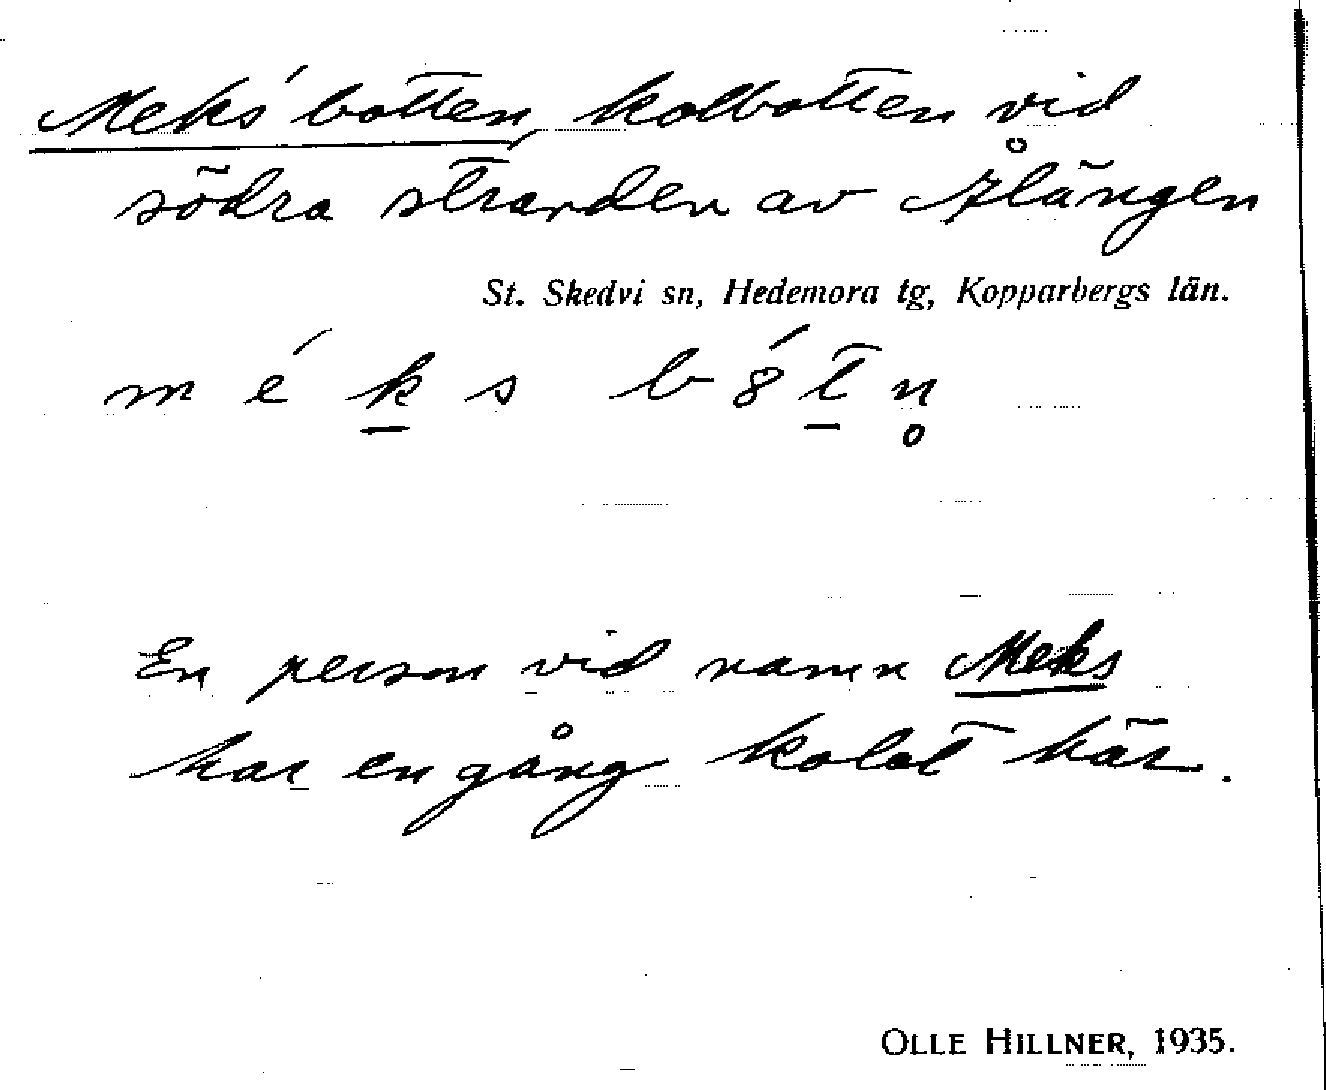 Meks'botten, kolbotten vid
södra stranden av Ålängen
St. Skedvi sn, Hedemora tg, Kopparbergs län.
m é k̲ s b 8́ t̲ n̥
En person vid namn Meks
har en gång kolat här.
OLLE HILLNER, 1935.